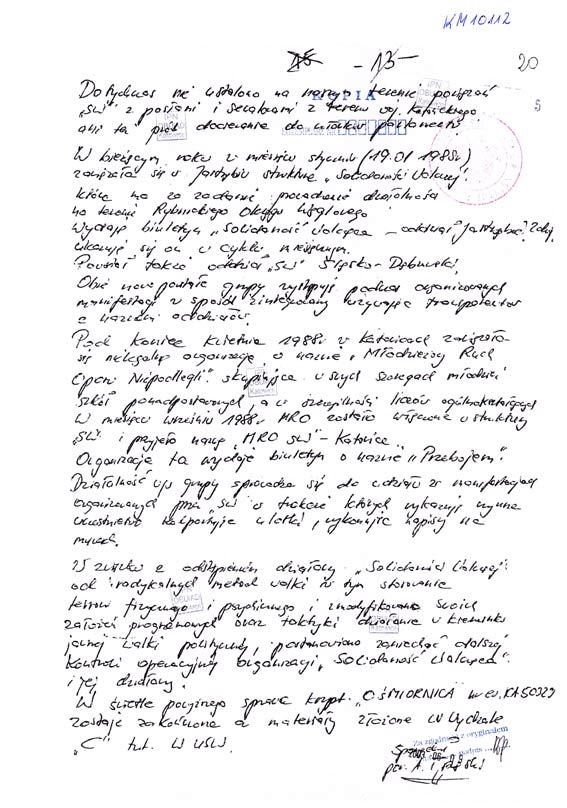 KM10112
-13-
20
5
KOPIA
Dotychczas nie ustalono na naszym terenie powiązań
"SW" z posłami i senatorami z terenu woj. katowickiego
ani też prób docierania do władz parlamentu.
W bieżącym roku w miesiącu styczniu (19.01 1989r)
zawiązała się w Jastrzębiu struktura "Solidarności Walczącej"
która ma za zadanie prowadzenie działalności
na terenie Rybnickiego Okręgu Węglowego.
Wydaje biuletyn "Solidarność Walcząca - oddział Jastrzębie Zdrój"
ukazuje się on w cyklu miesięcznym.
Powstał także oddział "SW" Śląsko-Dąbrowski.
Obie nowopowstałe grupy występują podczas organizowanych
manifestacji w sposób zintegrowany używając transparentów
z nazwami oddziałów.
Pod koniec kwietnia 1988r w Katowicach zawiązała
się nielegalna organizacja o nazwie "Młodzieżowy Ruch
Oporu Niepodległość" skupiająca w swych szeregach młodzież
szkół ponadpodstawowych, a w szczególności liceów ogólnokształcących
W miesiącu wrześniu 1988r MRO została włączona w struktury
"SW" i przyjęła nazwę "MRO SW" - Katowice.
Organizacja ta wydaje biuletyn o nazwie "Przebojem".
Działalność w/w grupy sprowadza się do udziału w manifestacjach
organizowanych przez "SW" w trakcie których wykazuje czynne
uczestnictwo kolportuje ulotki, wykonuje napisy na
murach.
W związku z odstąpieniem działaczy "Solidarności Walczącej"
od radykalnych metod walki w tym stosowania
terroru fizycznego i psychicznego i zmodyfikowania swoich
założeń programowych oraz taktyki działania w kierunku
jawnej walki politycznej, postanowiono zaniechać dalszej
kontroli operacyjnej organizacji "Solidarność Walcząca"
i jej działaczy.
W świetle powyższego sprawa krypt. "OŚMIORNICA" nr ew. KA50929
zostaje zakończona a materiały złożone w Wydziale
"C" tut. WUSW.
Za zgodność z oryginałem